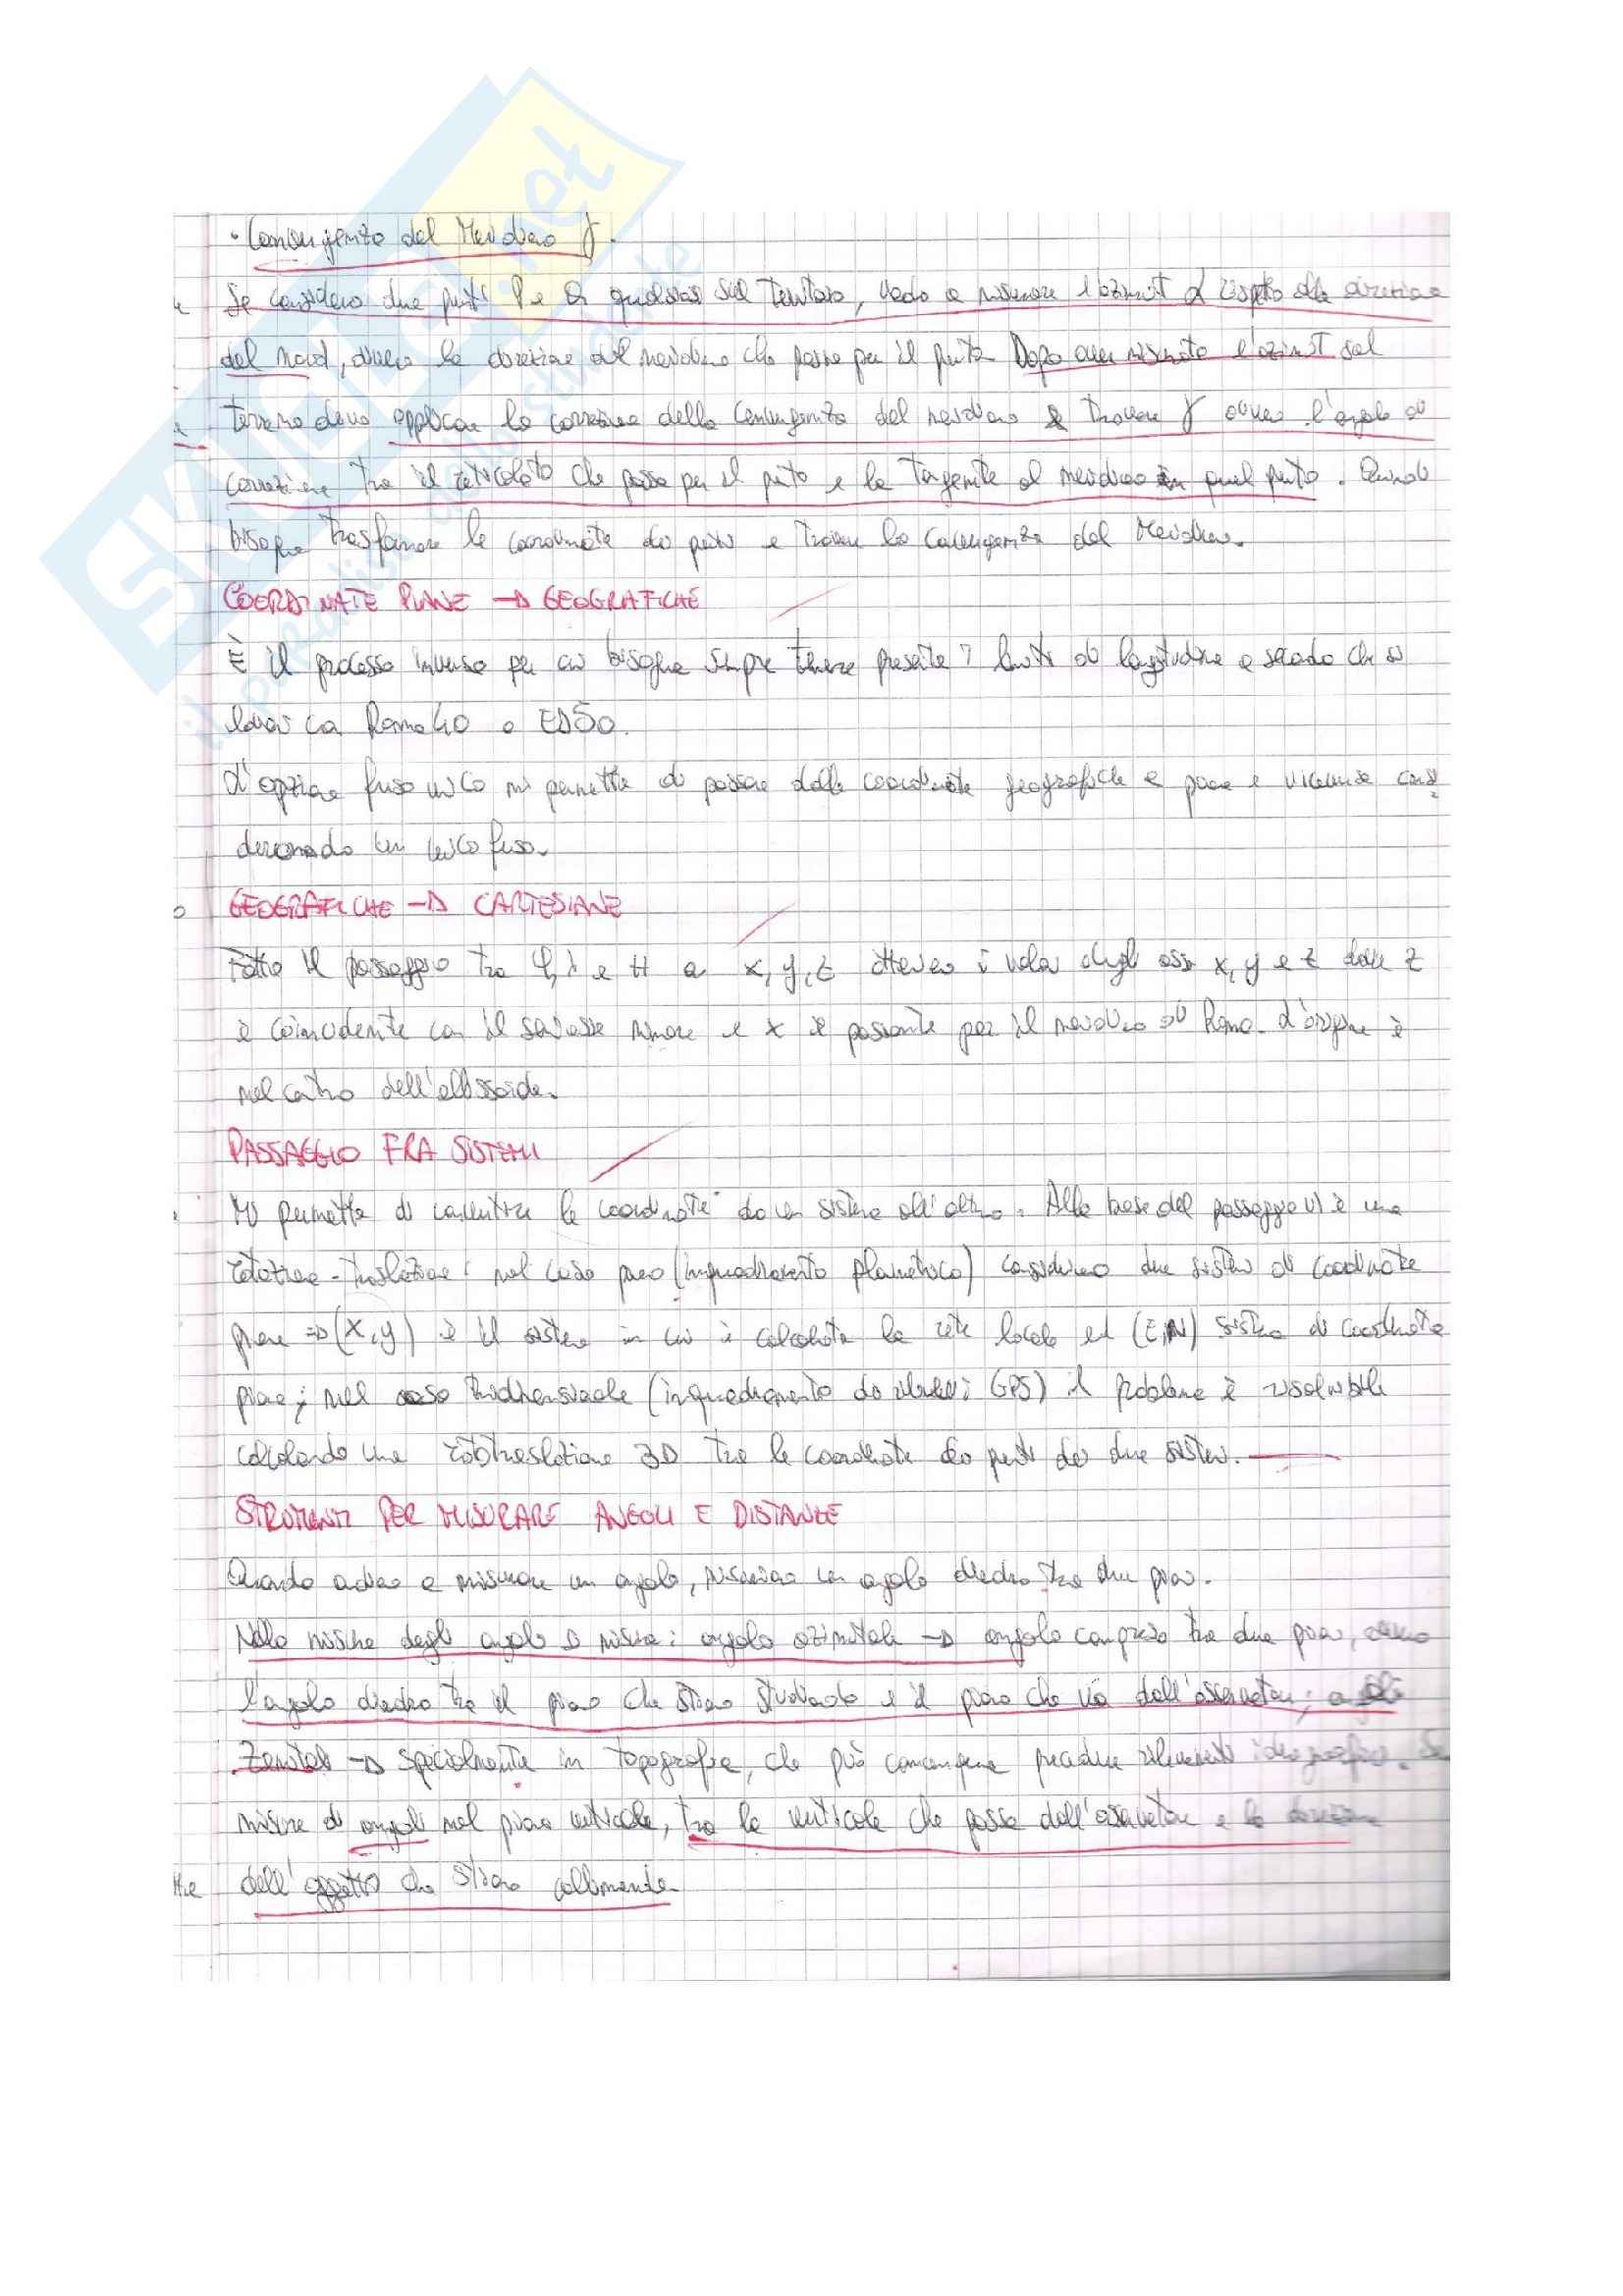 • Convergenza del Meridiano γ.
Se considero due punti P e Q qualsiasi sul territorio, vado a misurare l'azimut α rispetto alla direzione
del nord, ovvero la direzione del meridiano che passa per il punto. Dopo aver misurato l'azimut sul
terreno devo applicare la correzione della convergenza del meridiano e trovare γ ovvero l'angolo di
correzione tra il reticolato che passa per il punto e la tangente al meridiano in quel punto. Quindi
bisogna trasformare le coordinate dei punti e trovare la convergenza del Meridiano.
COORDINATE PIANE → GEOGRAFICHE
È il processo inverso per cui bisogna sempre tenere presente i limiti di longitudine a secondo che si
lavori con Roma40 o ED50.
L'opzione fuso unico mi permette di passare dalle coordinate geografiche a piane e viceversa consi
derando un unico fuso.
GEOGRAFICHE → CARTESIANE
Fatto il passaggio tra φ, λ e H a x, y, z otteniamo i valori degli assi x, y e z dove z
è coincidente con il semiasse minore e x è passante per il meridiano di Roma. L'origine è
nel centro dell'ellissoide.
PASSAGGIO FRA SISTEMI
Mi permette di convertire le coordinate da un sistema all'altro. Alla base del passaggio vi è una
rotazione-traslazione: nel caso piano (inquadramento planimetrico) consideriamo due sistemi di coordinate
piane ⇒ (X, y) è il sistema in cui è calcolata la rete locale ed (E,N) sistema di coordinate
piane; nel caso tridimensionale (inquadramento da rilievi GPS) il problema è risolvibile
calcolando una rototraslazione 3D tra le coordinate dei punti dei due sistemi.
STRUMENTI PER MISURARE ANGOLI E DISTANZE
Quando andiamo a misurare un angolo, misuriamo un angolo diedro tra due piani.
Nella misura degli angoli si misura: angolo azimutale → angolo compreso tra due piani, ovvero
l'angolo diedro tra il piano che stiamo studiando e il piano che va dall'osservatore; angoli
zenitali → specialmente in topografia, che può comprendere rilevamenti. Si
misura di angoli nel piano verticale, tra la verticale che passa dall'osservatore e la direzione
dell'oggetto che stiamo collimando.